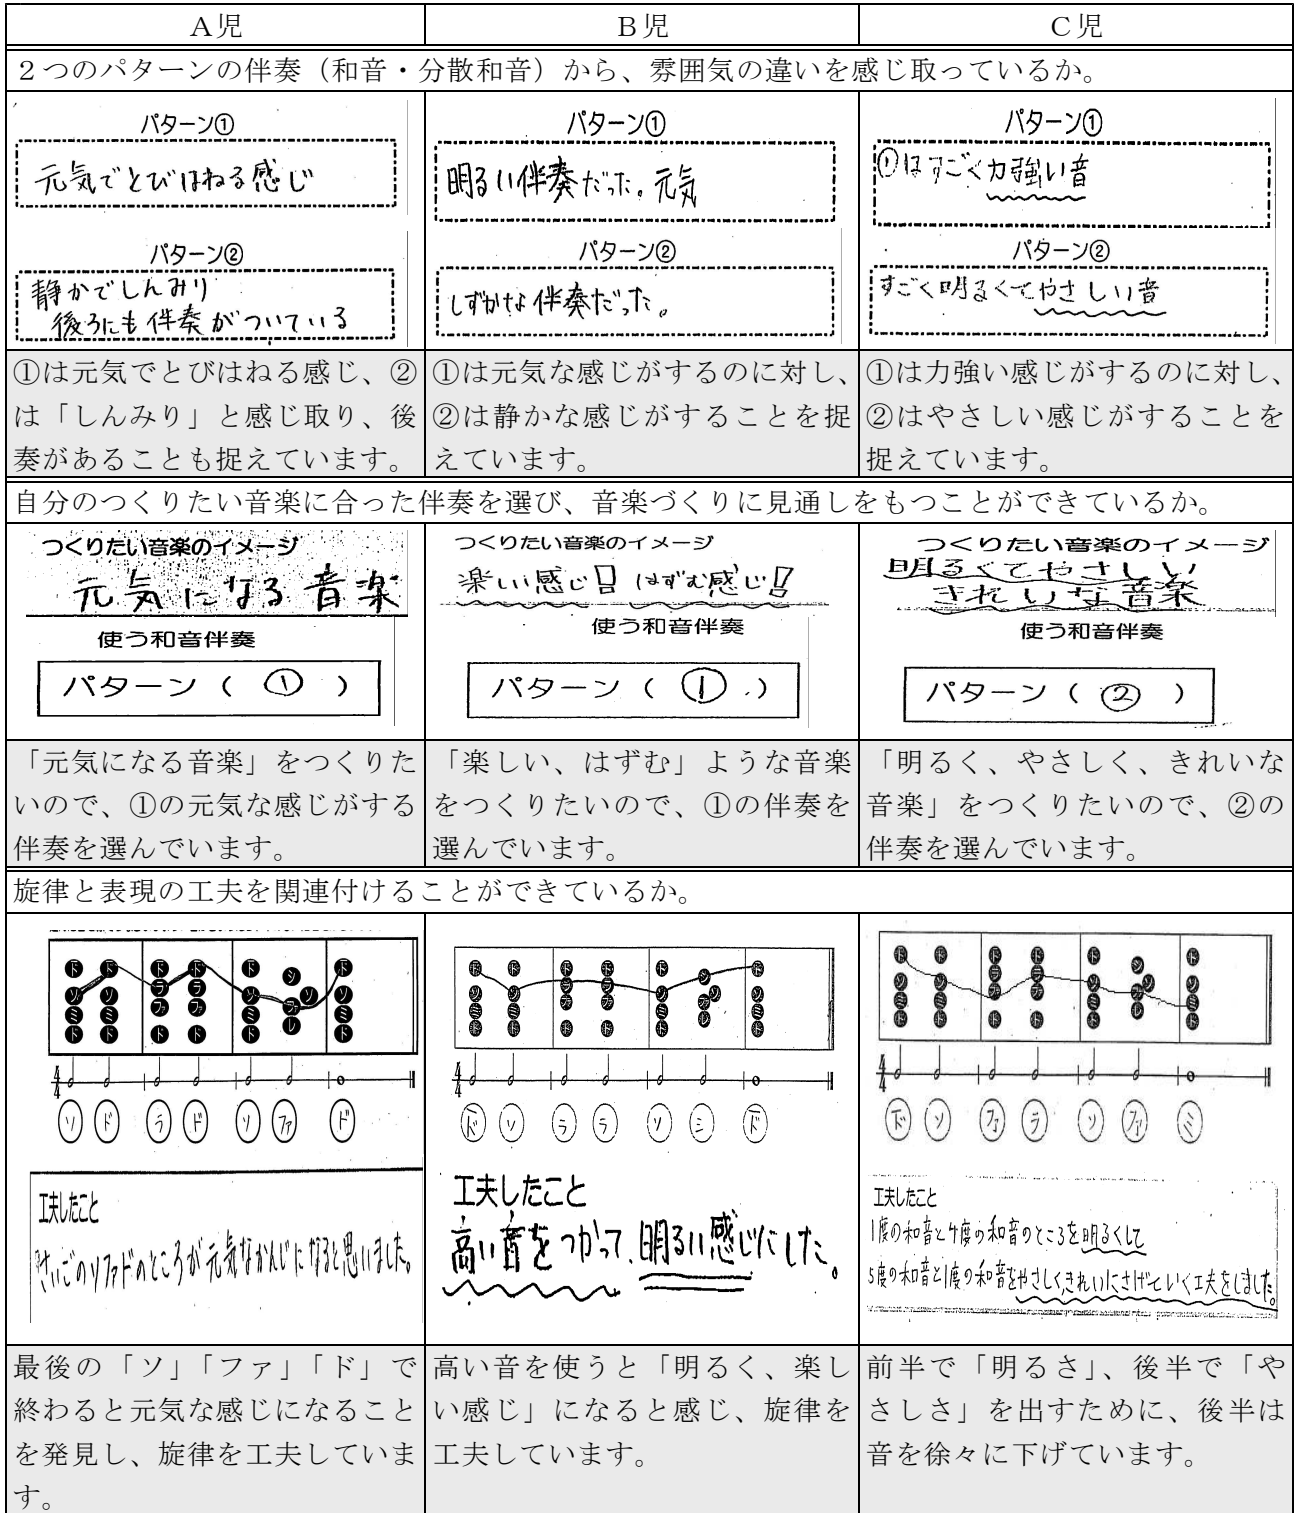 A児
B児
C児
2つのパターンの伴奏（和音・分散和音）から、雰囲気の違いを感じ取っているか。
パターン①
元気でとびはねる感じ
パターン②
静かでしんみり
後ろにも伴奏がついている
パターン①
明るい伴奏だった。元気
パターン②
しずかな伴奏だった。
パターン①
①はすごく力強い音
パターン②
すごく明るくてやさしい音
①は元気でとびはねる感じ、②
は「しんみり」と感じ取り、後
奏があることも捉えています。
①は元気な感じがするのに対し、
②は静かな感じがすることを捉
えています。
①は力強い感じがするのに対し、
②はやさしい感じがすることを
捉えています。
自分のつくりたい音楽に合った伴奏を選び、音楽づくりに見通しをもつことができているか。
つくりたい音楽のイメージ
元気になる音楽
使う和音伴奏
パターン（ ① ）
つくりたい音楽のイメージ
楽しい感じ!! はずむ感じ!!
使う和音伴奏
パターン（ ① ）
つくりたい音楽のイメージ
明るくてやさしい
きれいな音楽
使う和音伴奏
パターン（ ② ）
「元気になる音楽」をつくりた
いので、①の元気な感じがする
伴奏を選んでいます。
「楽しい、はずむ」ような音楽
をつくりたいので、①の伴奏を
選んでいます。
「明るく、やさしく、きれいな
音楽」をつくりたいので、②の
伴奏を選んでいます。
旋律と表現の工夫を関連付けることができているか。
ド ド ド ド ド シ ド
ソ ソ ラ ラ ソ ソ ソ
ミ ミ ファ ファ ミ ファ ミ
ド ド ド ド ド レ ド
4/4
ソ ド ラ ド ソ ファ ド
工夫したこと
さいごのソファドのところが元気なかんじになると思いました。
ド ド ド ド ド シ ド
ソ ソ ラ ラ ソ ソ ソ
ミ ミ ファ ファ ミ ファ ミ
ド ド ド ド ド レ ド
4/4
ド ソ ラ ラ ソ シ ド
工夫したこと
高い音をつかって、明るい感じにした。
ド ド ド ド ド シ ド
ソ ソ ラ ラ ソ ソ ソ
ミ ミ ファ ファ ミ ファ ミ
ド ド ド ド ド レ ド
4/4
ド ソ ファ ラ ソ ファ ミ
工夫したこと
1度の和音と4度の和音のところを明るくして
5度の和音と1度の和音をやさしく、きれいにさげていく工夫をしました。
最後の「ソ」「ファ」「ド」で
終わると元気な感じになること
を発見し、旋律を工夫していま
す。
高い音を使うと「明るく、楽し
い感じ」になると感じ、旋律を
工夫しています。
前半で「明るさ」、後半で「や
さしさ」を出すために、後半は
音を徐々に下げています。